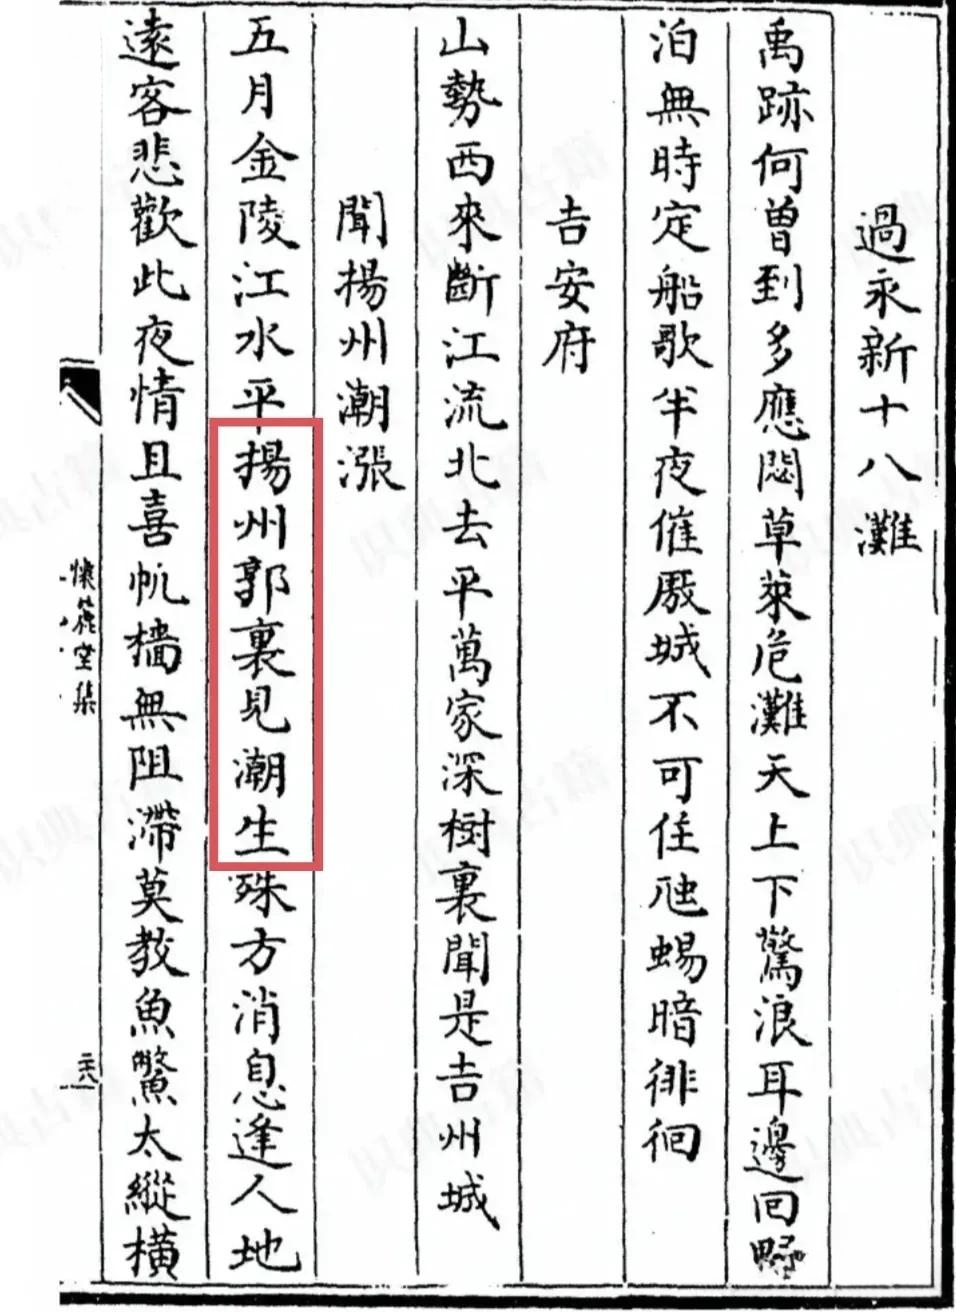 過永新十八灘
禹跡何曾到多應悶草萊危灘天上下驚浪耳邊回野
泊無時定船歌半夜催廢城不可住虺蜴暗徘徊
吉安府
山勢西來斷江流北去平萬家深樹裏聞是吉州城
聞揚州潮漲
五月金陵江水平揚州郭裏見潮生殊方消息逢人地
遠客悲歡此夜情且喜帆檣無阻滯莫教魚鱉太縱橫
懷蓰堂集
識典古籍